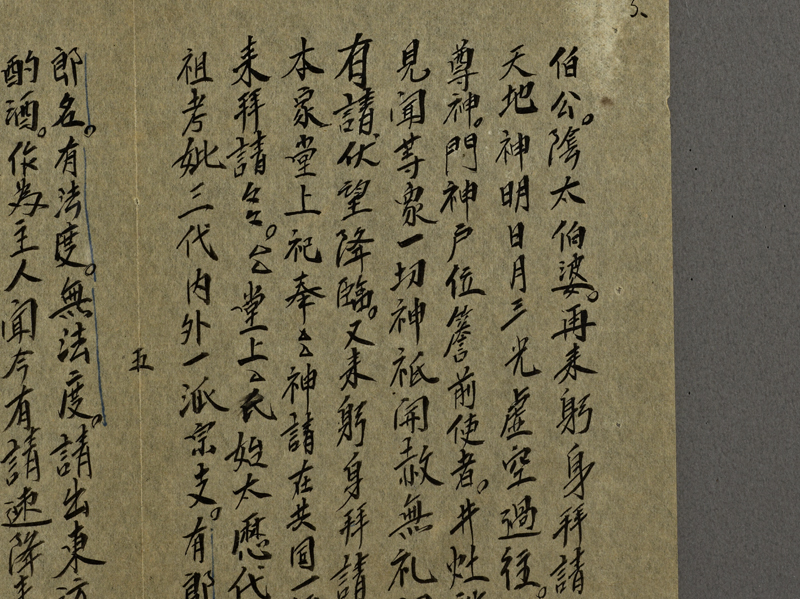 伯公。陰太伯婆。再来躬身拜請
天地神明日月三光虚空過往。
尊神。門神户位簷前使者。井灶
見聞等眾一切神祇開赦無礼
有請伏望降臨。又来躬身拜請
本家堂上祀奉厶厶神請在共同一
来拜請
堂上厶氏始太歷代
祖考妣三代内外一派宗支。有郎
郎名。有法度。無法度。請出東
五
酌酒。作為主人聞今有請速降